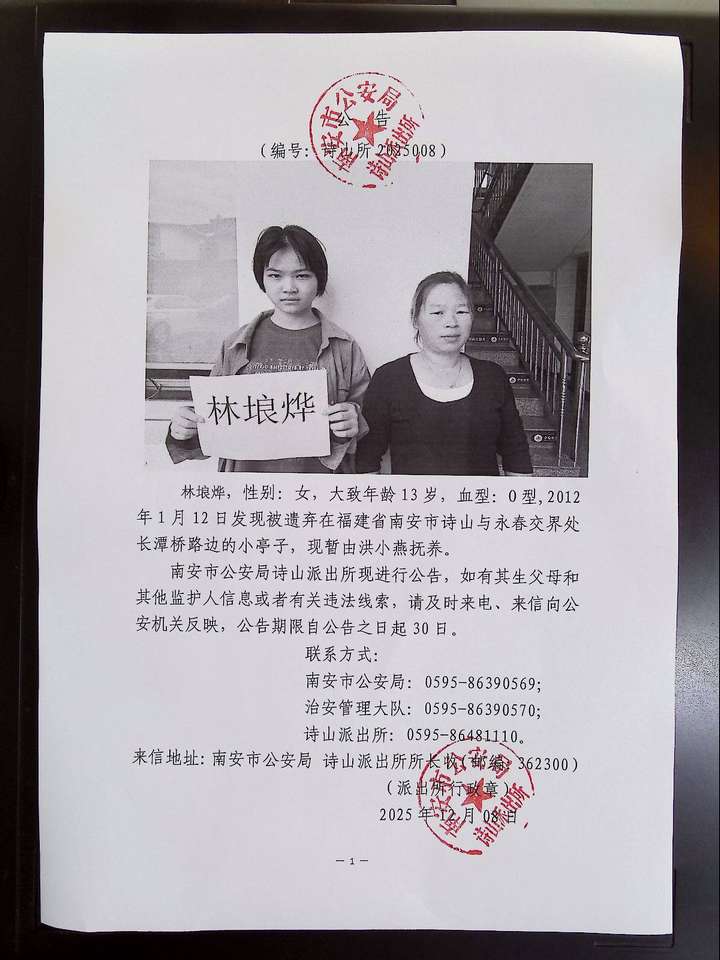 南安市公安局
诗山派出所
公 告
（编号：诗山所 2025008）
林埌烨
林埌烨，性别：女，大致年龄 13 岁，血型：O 型，2012
年 1 月 12 日发现被遗弃在福建省南安市诗山与永春交界处
长潭桥路边的小亭子，现暂由洪小燕抚养。
南安市公安局诗山派出所现进行公告，如有其生父母和
其他监护人信息或者有关违法线索，请及时来电、来信向公
安机关反映，公告期限自公告之日起 30 日。
联系方式：
南安市公安局：0595-86390569;
治安管理大队：0595-86390570;
诗山派出所：0595-86481110。
来信地址：南安市公安局 诗山派出所所长收(邮编：362300)
（派出所行政章）
2025 年 12 月 08 日
南安市公安局
诗山派出所
— 1 —